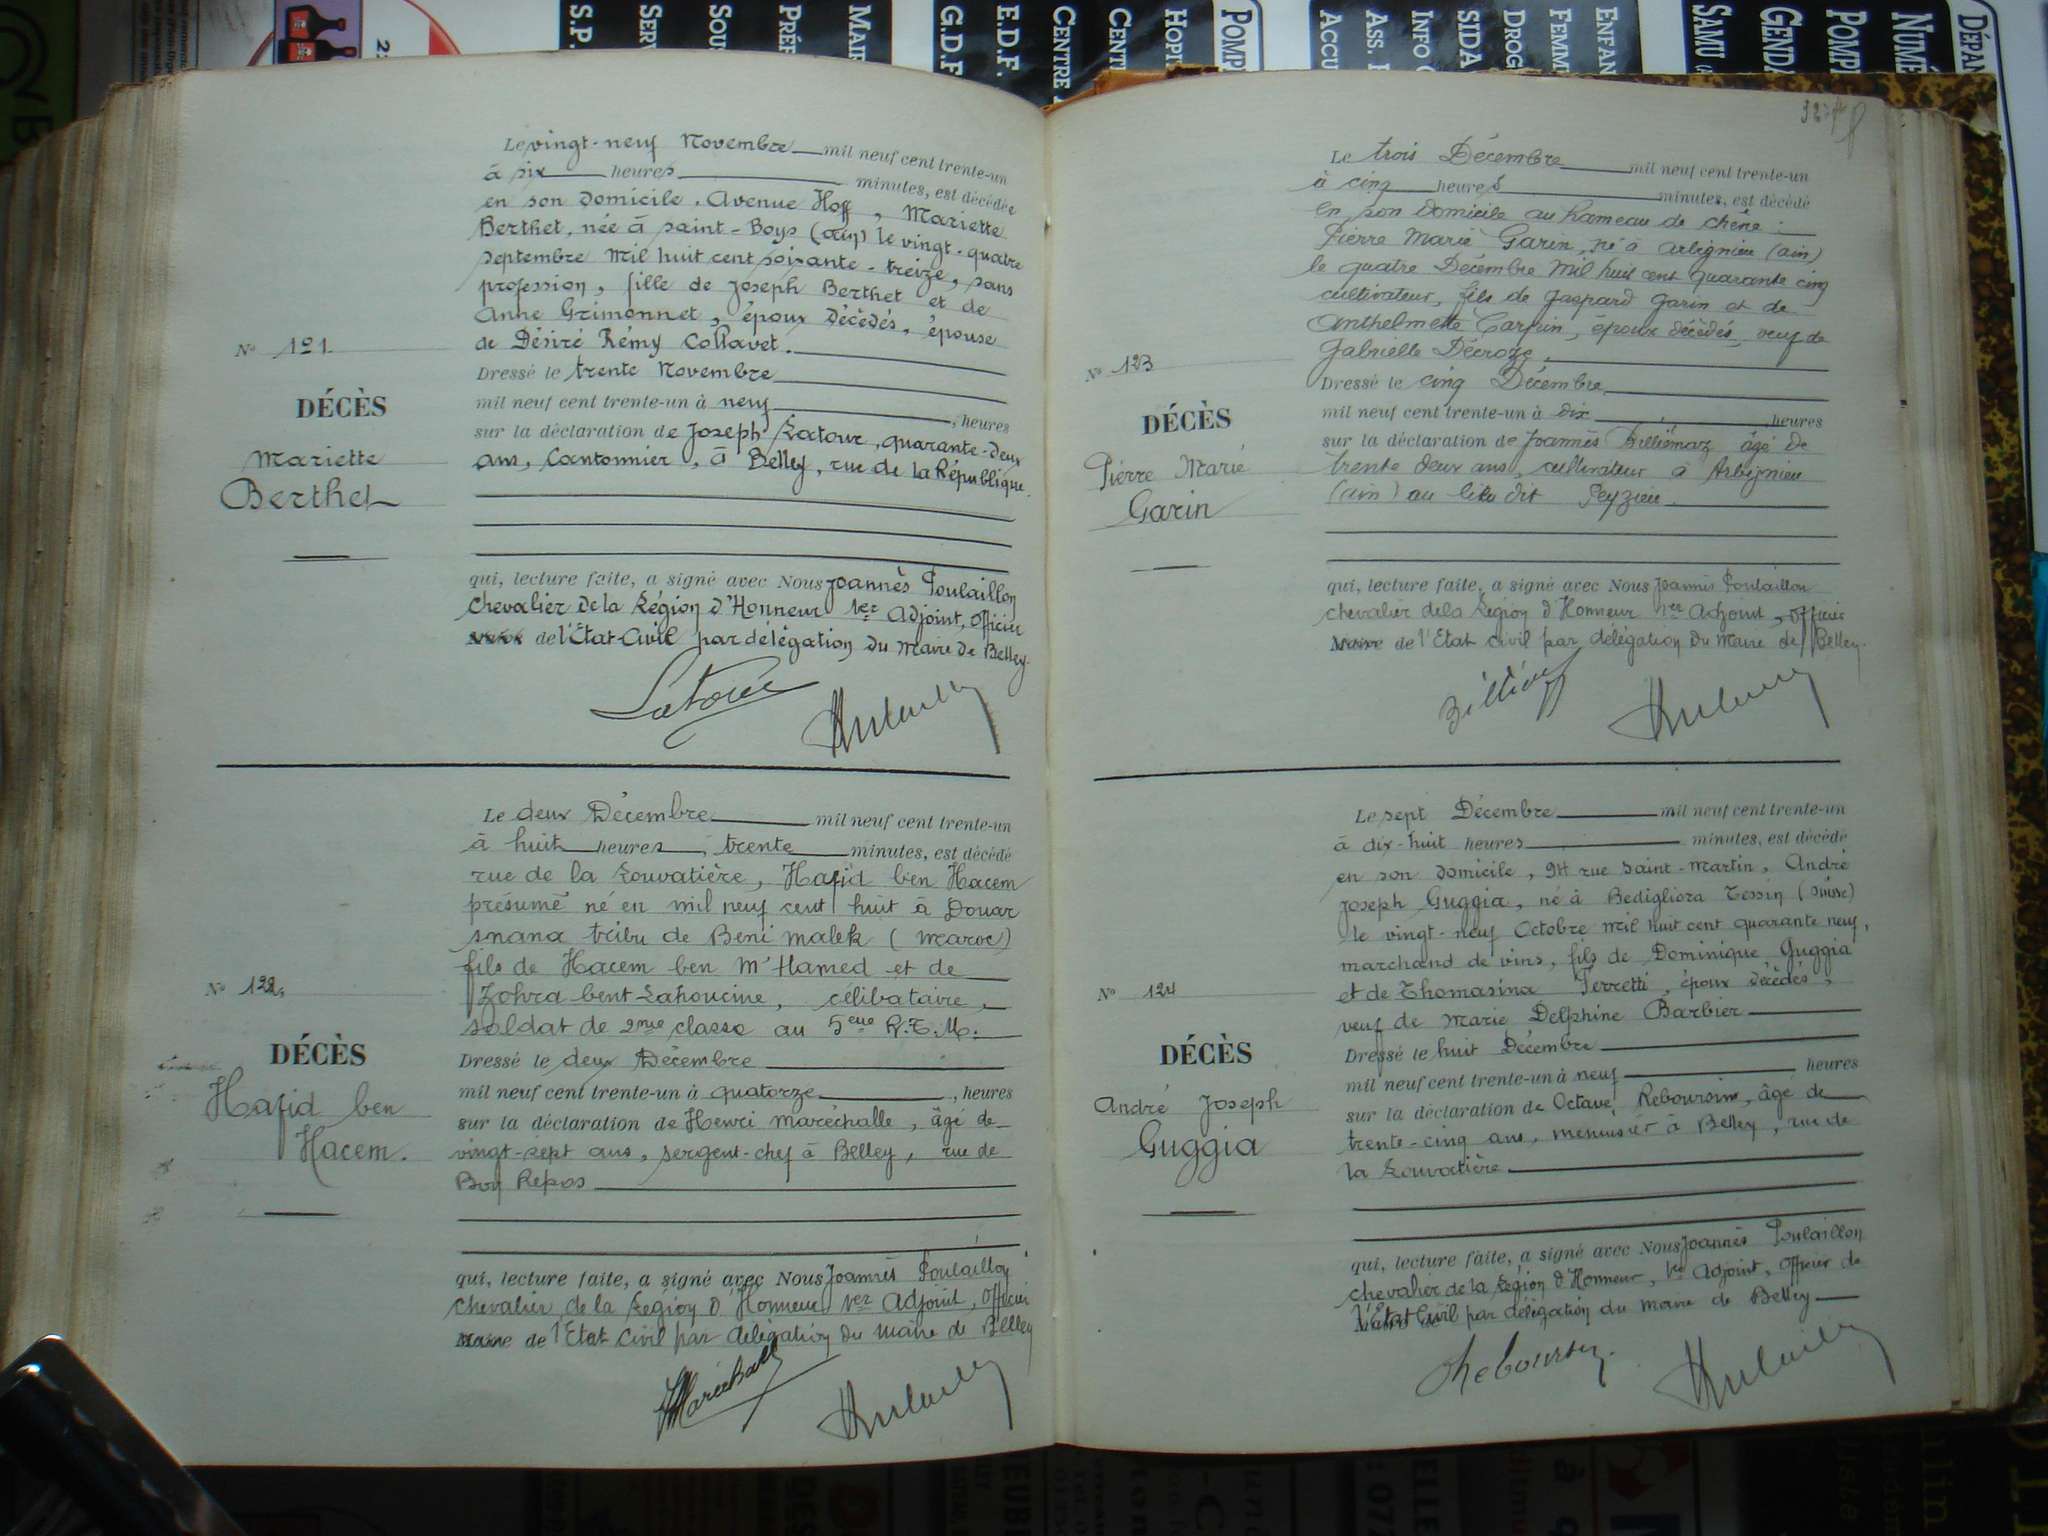 Le vingt-neuf Novembre mil neuf cent trente-un
à six heures minutes, est décédée
en son domicile, Avenue Hoff, Mariette
Berthet, née à Saint-Boys (Ain) le vingt-quatre
septembre mil huit cent soixante-treize, sans
profession, fille de Joseph Berthet et de
Anne Grimonnet, époux décédés, épouse
de Désiré Rémy Collavet.
Nº 121
DÉCÈS
Mariette
Berthet
Dressé le trente Novembre
mil neuf cent trente-un à neuf , heures
sur la déclaration de Joseph Latour, quarante-deux
ans, Cantonnier, à Belley, rue de la République.
qui, lecture faite, a signé avec Nous Joannès Poulaillon
Chevalier de la Légion d'Honneur 1er Adjoint, Officier
de l'Etat-Civil par délégation du Maire de Belley.
Latour
Le deux Décembre mil neuf cent trente-un
à huit heures, trente minutes, est décédé
rue de la Louvatière, Hafid ben Hacem
présumé né en mil neuf cent huit à Douar
Snana tribu de Beni Malek (Maroc)
fils de Hacem ben M'Hamed et de
Zohra bent Lahoucine, célibataire,
soldat de 2me classe au 5eme R.T.M.
Nº 122
DÉCÈS
Hafid ben
Hacem.
Dressé le deux Décembre
mil neuf cent trente-un à quatorze , heures
sur la déclaration de Henri Maréchalle, âgé de
vingt-sept ans, sergent-chef à Belley, rue de
Bon Repos
qui, lecture faite, a signé avec Nous Joannès Poulaillon
Chevalier de la Légion d'Honneur 1er Adjoint, Officier
Maire de l'Etat Civil par délégation du Maire de Belley
Le trois Décembre mil neuf cent trente-un
à cinq heures minutes, est décédé
en son domicile au hameau de chêne :
Pierre Marie Garin, né à Arbignieu (Ain)
le quatre Décembre mil huit cent quarante cinq
cultivateur, fils de Gaspard Garin et de
Anthelmette Carrin, époux décédés, veuf de
Gabrielle Décroze.
Nº 123
DÉCÈS
Pierre Marie
Garin
Dressé le cinq Décembre
mil neuf cent trente-un à dix , heures
sur la déclaration de Joannès Billiémaz âgé de
trente deux ans, cultivateur à Arbignieu
(Ain) au lieu dit Peyzieu
qui, lecture faite, a signé avec Nous Joannès Poulaillon
chevalier de la Légion d'Honneur 1er Adjoint, Officier
Maire de l'Etat Civil par délégation du Maire de Belley.
Le sept Décembre mil neuf cent trente-un
à dix-huit heures minutes, est décédé
en son domicile, 94 rue Saint-Martin, André
Joseph Guggia, né à Bedigliora Tessin (Suisse)
le vingt-neuf Octobre mil huit cent quarante neuf,
marchand de vins, fils de Dominique Guggia
et de Thomasina Ferretti, époux décédés,
veuf de Marie Delphine Barbier
Nº 124
DÉCÈS
André Joseph
Guggia
Dressé le huit Décembre
mil neuf cent trente-un à neuf heures
sur la déclaration de Octave Reboursin, âgé de
trente-cinq ans, menuisier à Belley, rue de
la Louvatière
qui, lecture faite, a signé avec Nous Joannès Poulaillon
chevalier de la Légion d'Honneur, 1er Adjoint, Officier de
l'Etat Civil par délégation du Maire de Belley
Reboursin